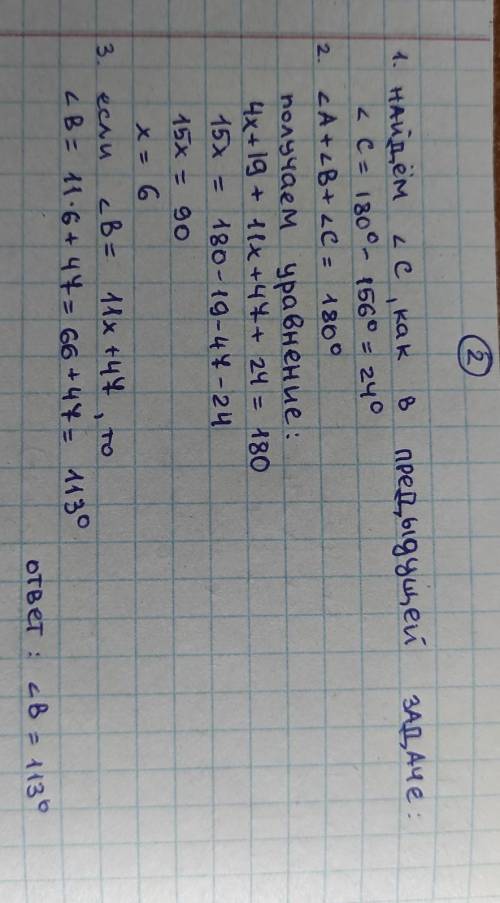 2
1. НАЙДЁМ ∠C, как в ПРЕДЫДУЩЕЙ ЗАДАЧЕ:
∠C = 180° - 156° = 24°
2. ∠A + ∠B + ∠C = 180°
получаем уравнение:
4x + 19 + 11x + 47 + 24 = 180
15x = 180 - 19 - 47 - 24
15x = 90
x = 6
3. если ∠B = 11x + 47, то
∠B = 11·6 + 47 = 66 + 47 = 113°
ответ: ∠B = 113°